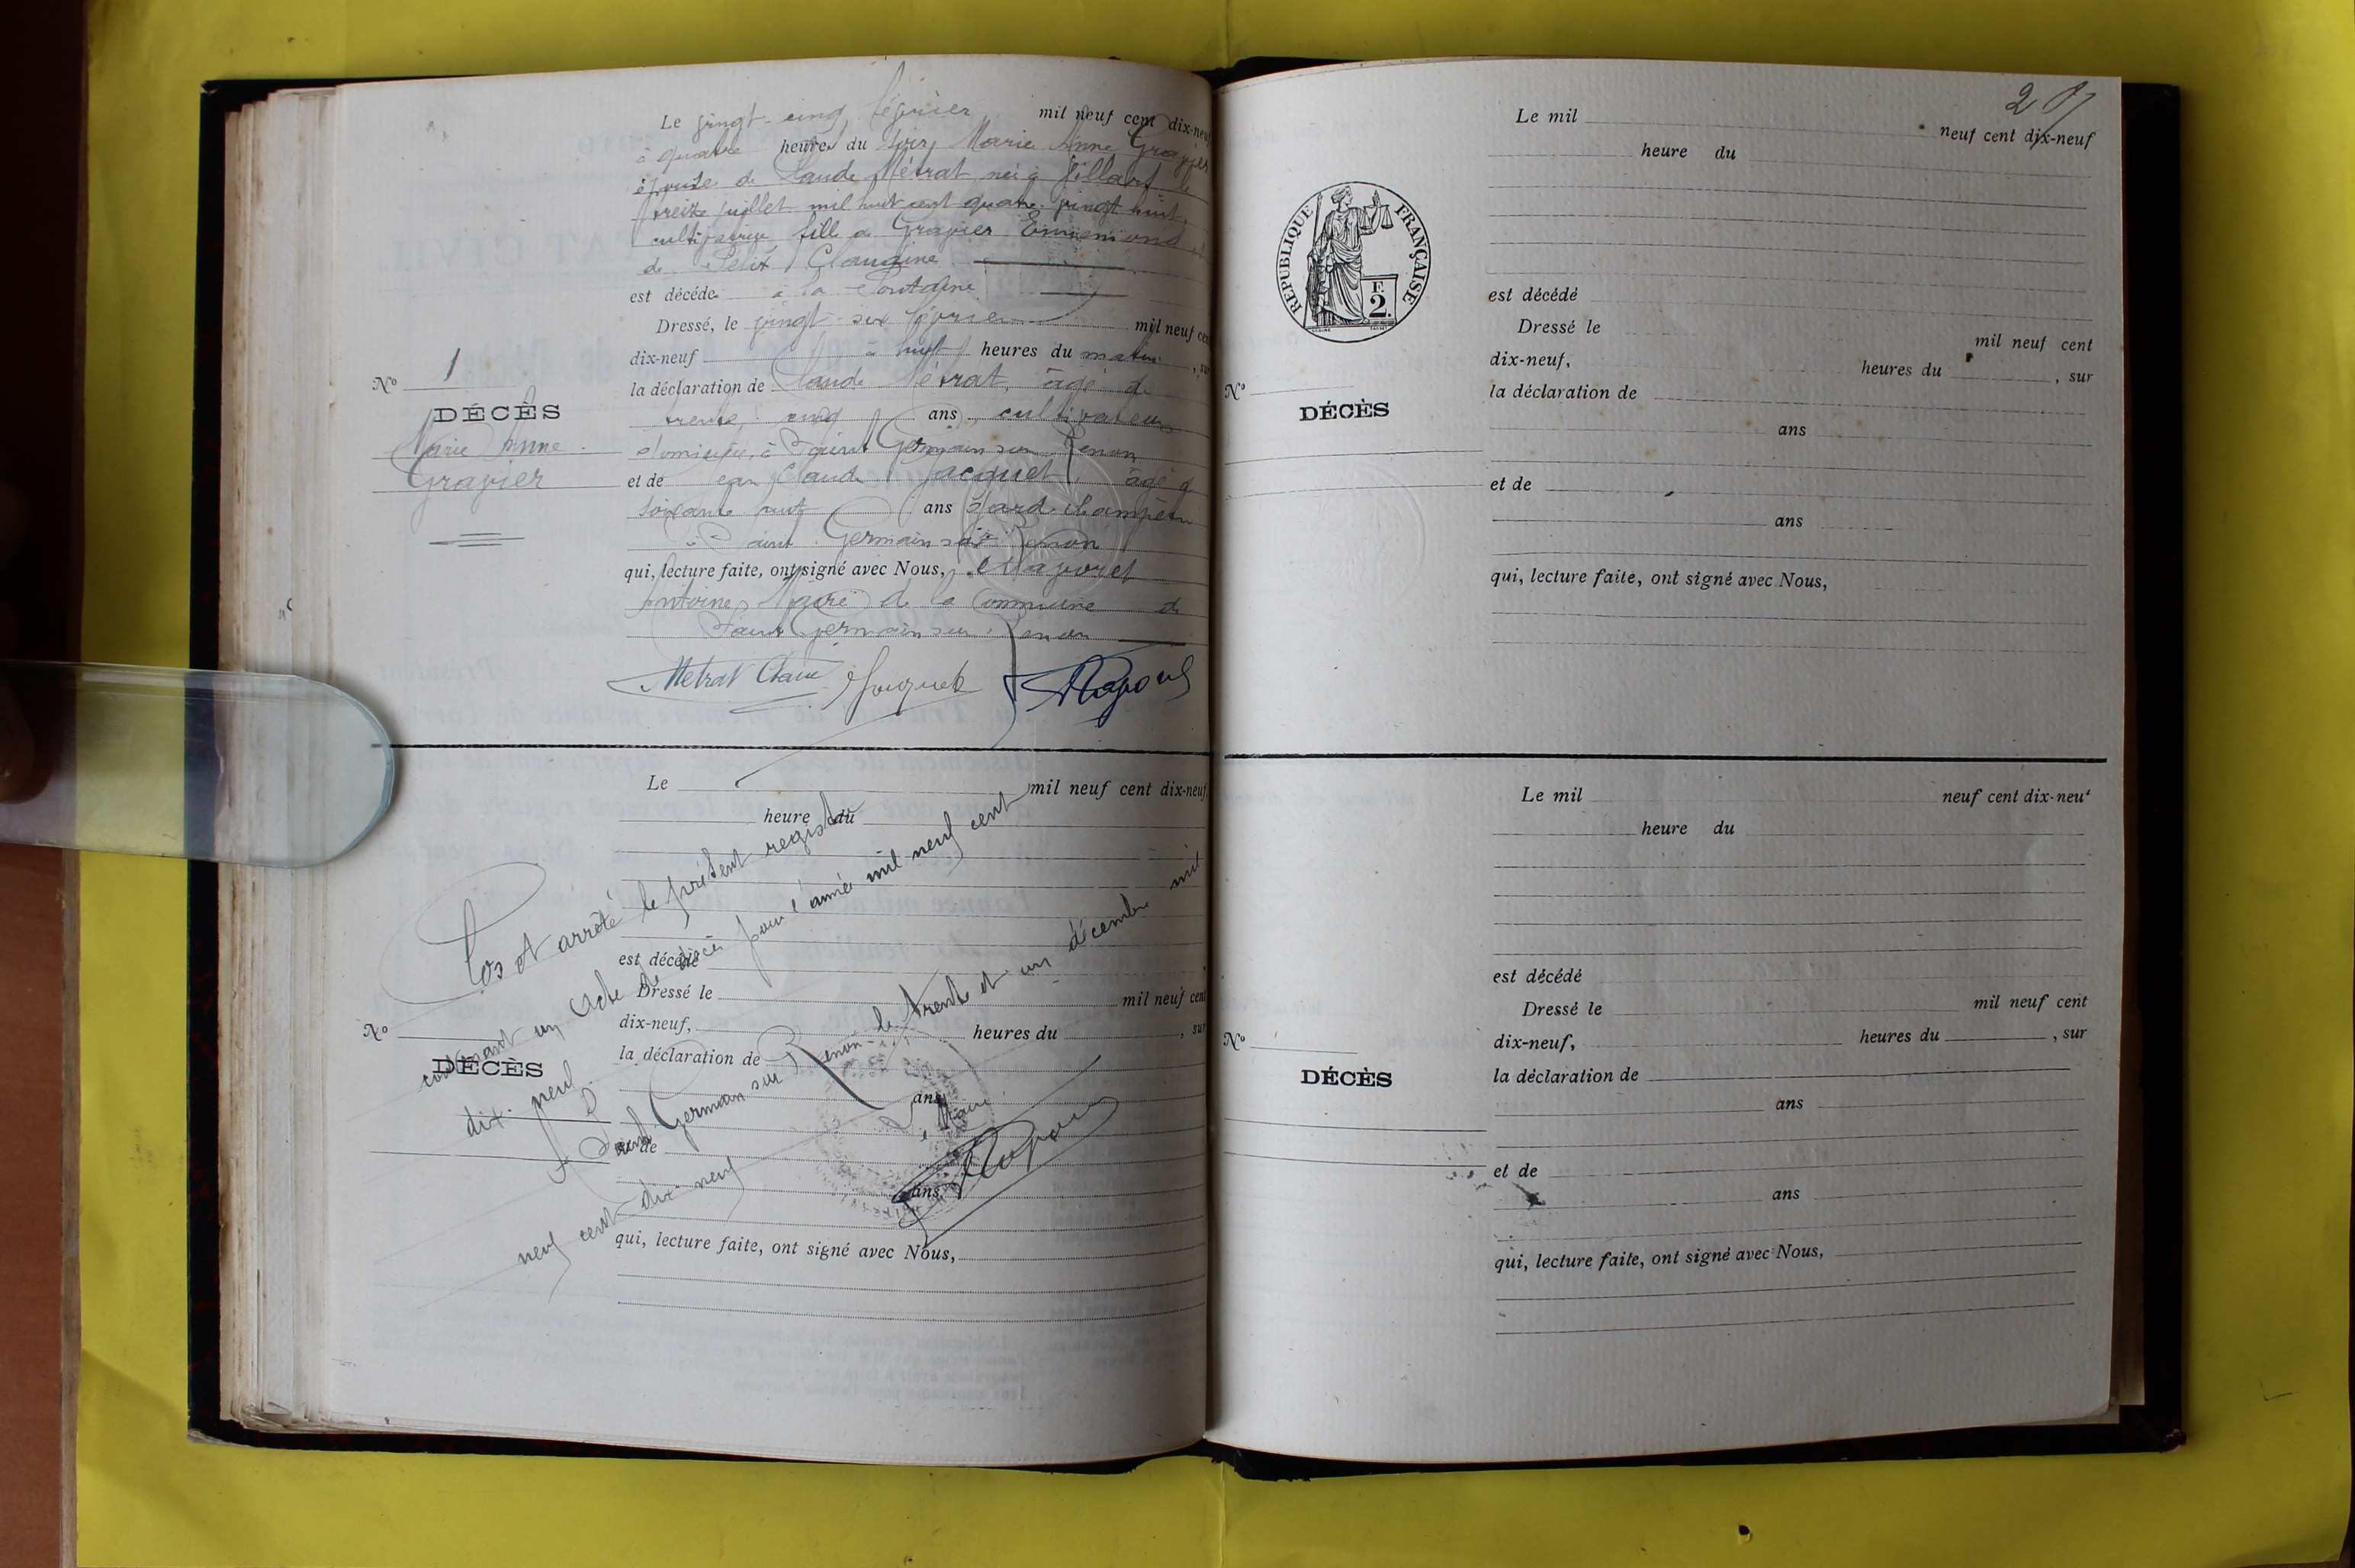 Le vingt-cinq février mil neuf cent dix-neuf
à quatre heures du soir, Marie Anne Gravier
épouse de Claude Métrat née à Villars le
treize juillet mil huit cent quatre vingt huit
cultivatrice fille de Gravier Ennemond et
de Petit Claudine
est décédée à la Fontaine
Dressé, le vingt-six février mil neuf cent
dix-neuf à huit heures du matin, sur
la déclaration de Claude Métrat, âgé de
trente cinq ans, cultivateur
domicilié, à Saint Germain sur Renon
et de Jean Claude Jacquet, âgé de
soixante huit ans Gard. champêtre
à Saint Germain sur Renon
qui, lecture faite, ont signé avec Nous,
Antoine, Maire de la Commune de
Saint Germain sur Renon
Métrat Claude Jacquet
No 1
DÉCÈS
Marie Anne
Gravier
Le mil neuf cent dix-neuf
heure du
est décédé
Dressé le mil neuf cent
dix-neuf, heures du , sur
la déclaration de
ans
et de
ans
qui, lecture faite, ont signé avec Nous,
No
DÉCÈS
Clos et arrêté le présent registre
contenant un acte de décès pour l'année mil neuf cent
dix-neuf
A Saint Germain sur Renon le trente et un décembre mil
neuf cent dix-neuf
Le Maire
20
Le mil neuf cent dix-neuf
heure du
REPUBLIQUE FRANÇAISE
F.
2.
est décédé
Dressé le mil neuf cent
dix-neuf, heures du , sur
la déclaration de
No
DÉCÈS
ans
et de
ans
qui, lecture faite, ont signé avec Nous,
Le mil neuf cent dix-neuf
heure du
est décédé
Dressé le mil neuf cent
dix-neuf, heures du , sur
No
DÉCÈS
la déclaration de
ans
et de
ans
qui, lecture faite, ont signé avec Nous,